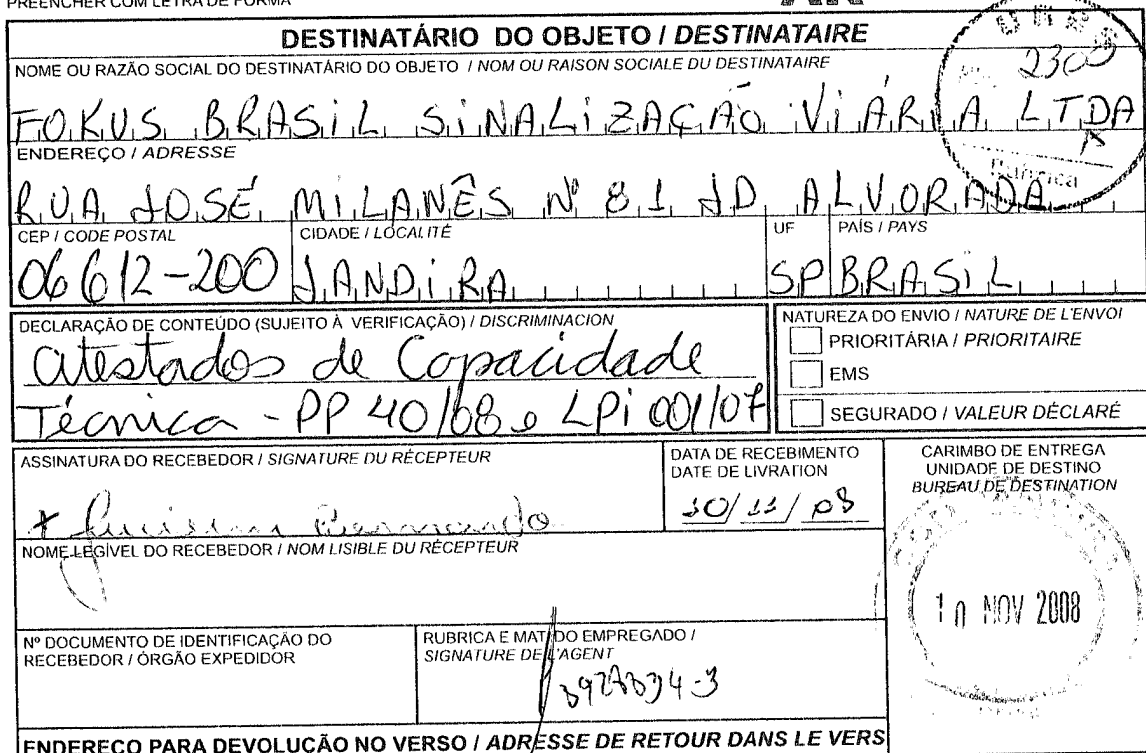 PREENCHER COM LETRA DE FORMA
AR
DESTINATÁRIO DO OBJETO / DESTINATAIRE
NOME OU RAZÃO SOCIAL DO DESTINATÁRIO DO OBJETO / NOM OU RAISON SOCIALE DU DESTINATAIRE
2305
FOKUS BRASIL SINALIZAÇÃO VIÁRIA LTDA
Rubrica
ENDEREÇO / ADRESSE
RUA JOSÉ MILANÊS Nº 81 JD ALVORADA
CEP / CODE POSTAL CIDADE / LOCALITÉ UF PAÍS / PAYS
06612-200 JANDIRA SP BRASIL
DECLARAÇÃO DE CONTEÚDO (SUJEITO À VERIFICAÇÃO) / DISCRIMINACION
Atestados de Capacidade
Técnica - PP 40/08 e LPi 001/07
NATUREZA DO ENVIO / NATURE DE L'ENVOI
PRIORITÁRIA / PRIORITAIRE
EMS
SEGURADO / VALEUR DÉCLARÉ
ASSINATURA DO RECEBEDOR / SIGNATURE DU RÉCEPTEUR
DATA DE RECEBIMENTO
DATE DE LIVRATION
10/11/08
CARIMBO DE ENTREGA
UNIDADE DE DESTINO
BUREAU DE DESTINATION
10 NOV 2008
NOME LEGÍVEL DO RECEBEDOR / NOM LISIBLE DU RÉCEPTEUR
Nº DOCUMENTO DE IDENTIFICAÇÃO DO
RECEBEDOR / ÓRGÃO EXPEDIDOR
RUBRICA E MAT. DO EMPREGADO /
SIGNATURE DE L'AGENT
ENDEREÇO PARA DEVOLUÇÃO NO VERSO / ADRESSE DE RETOUR DANS LE VERS